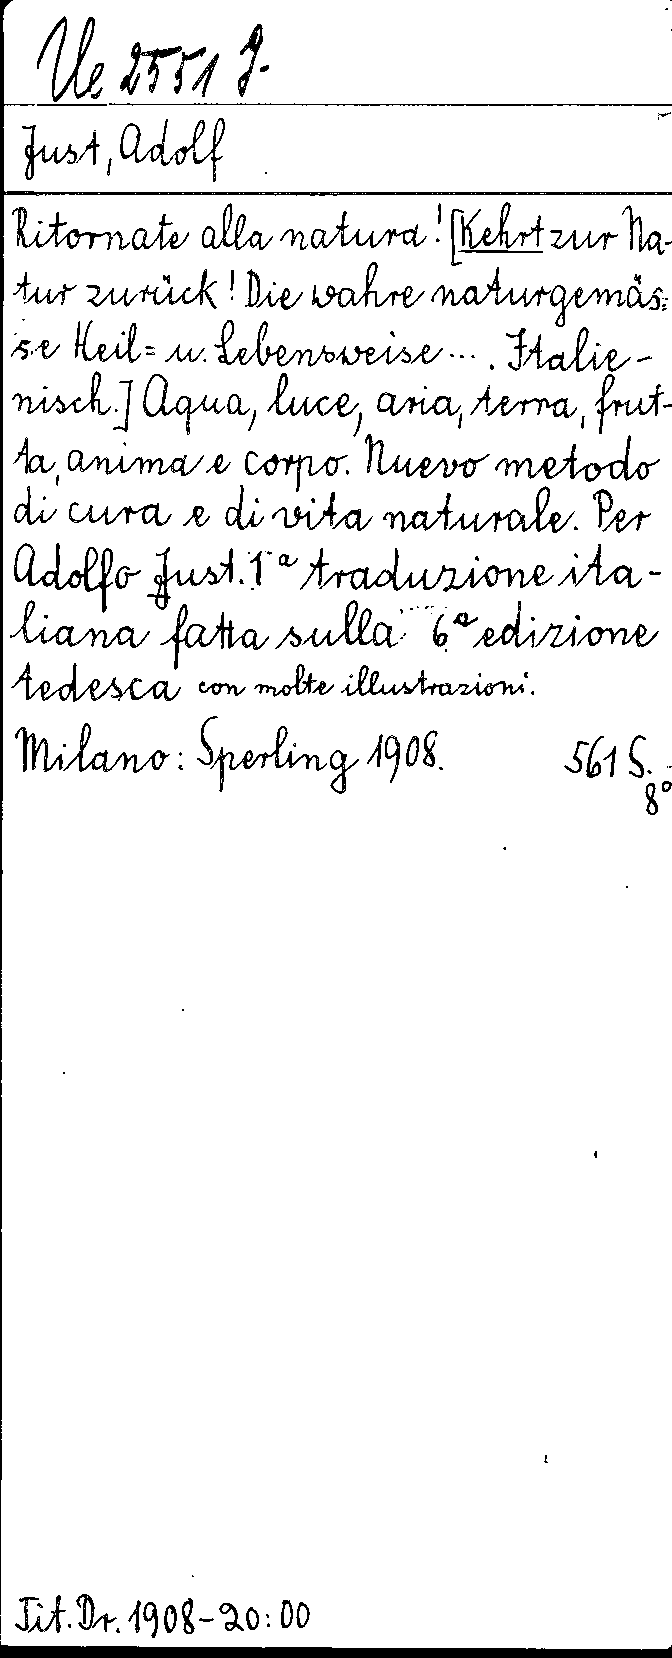 Ue 2551 g.
Just, Adolf
Ritornate alla natura! [Kehrt zur Na-
tur zurück! Die wahre naturgemäs-
se Heil= u. Lebensweise ... . Italie-
nisch.] Aqua, luce, aria, terra, frut-
ta, anima e corpo. Nuevo metodo
di cura e di vita naturale. Per
Adolfo Just. 1a traduzione ita-
liana fatta sulla 6a edizione
tedesca con molte illustrazioni.
Milano: Sperling 1908. 561 S.
8°
Tit. Dr. 1908-20:00